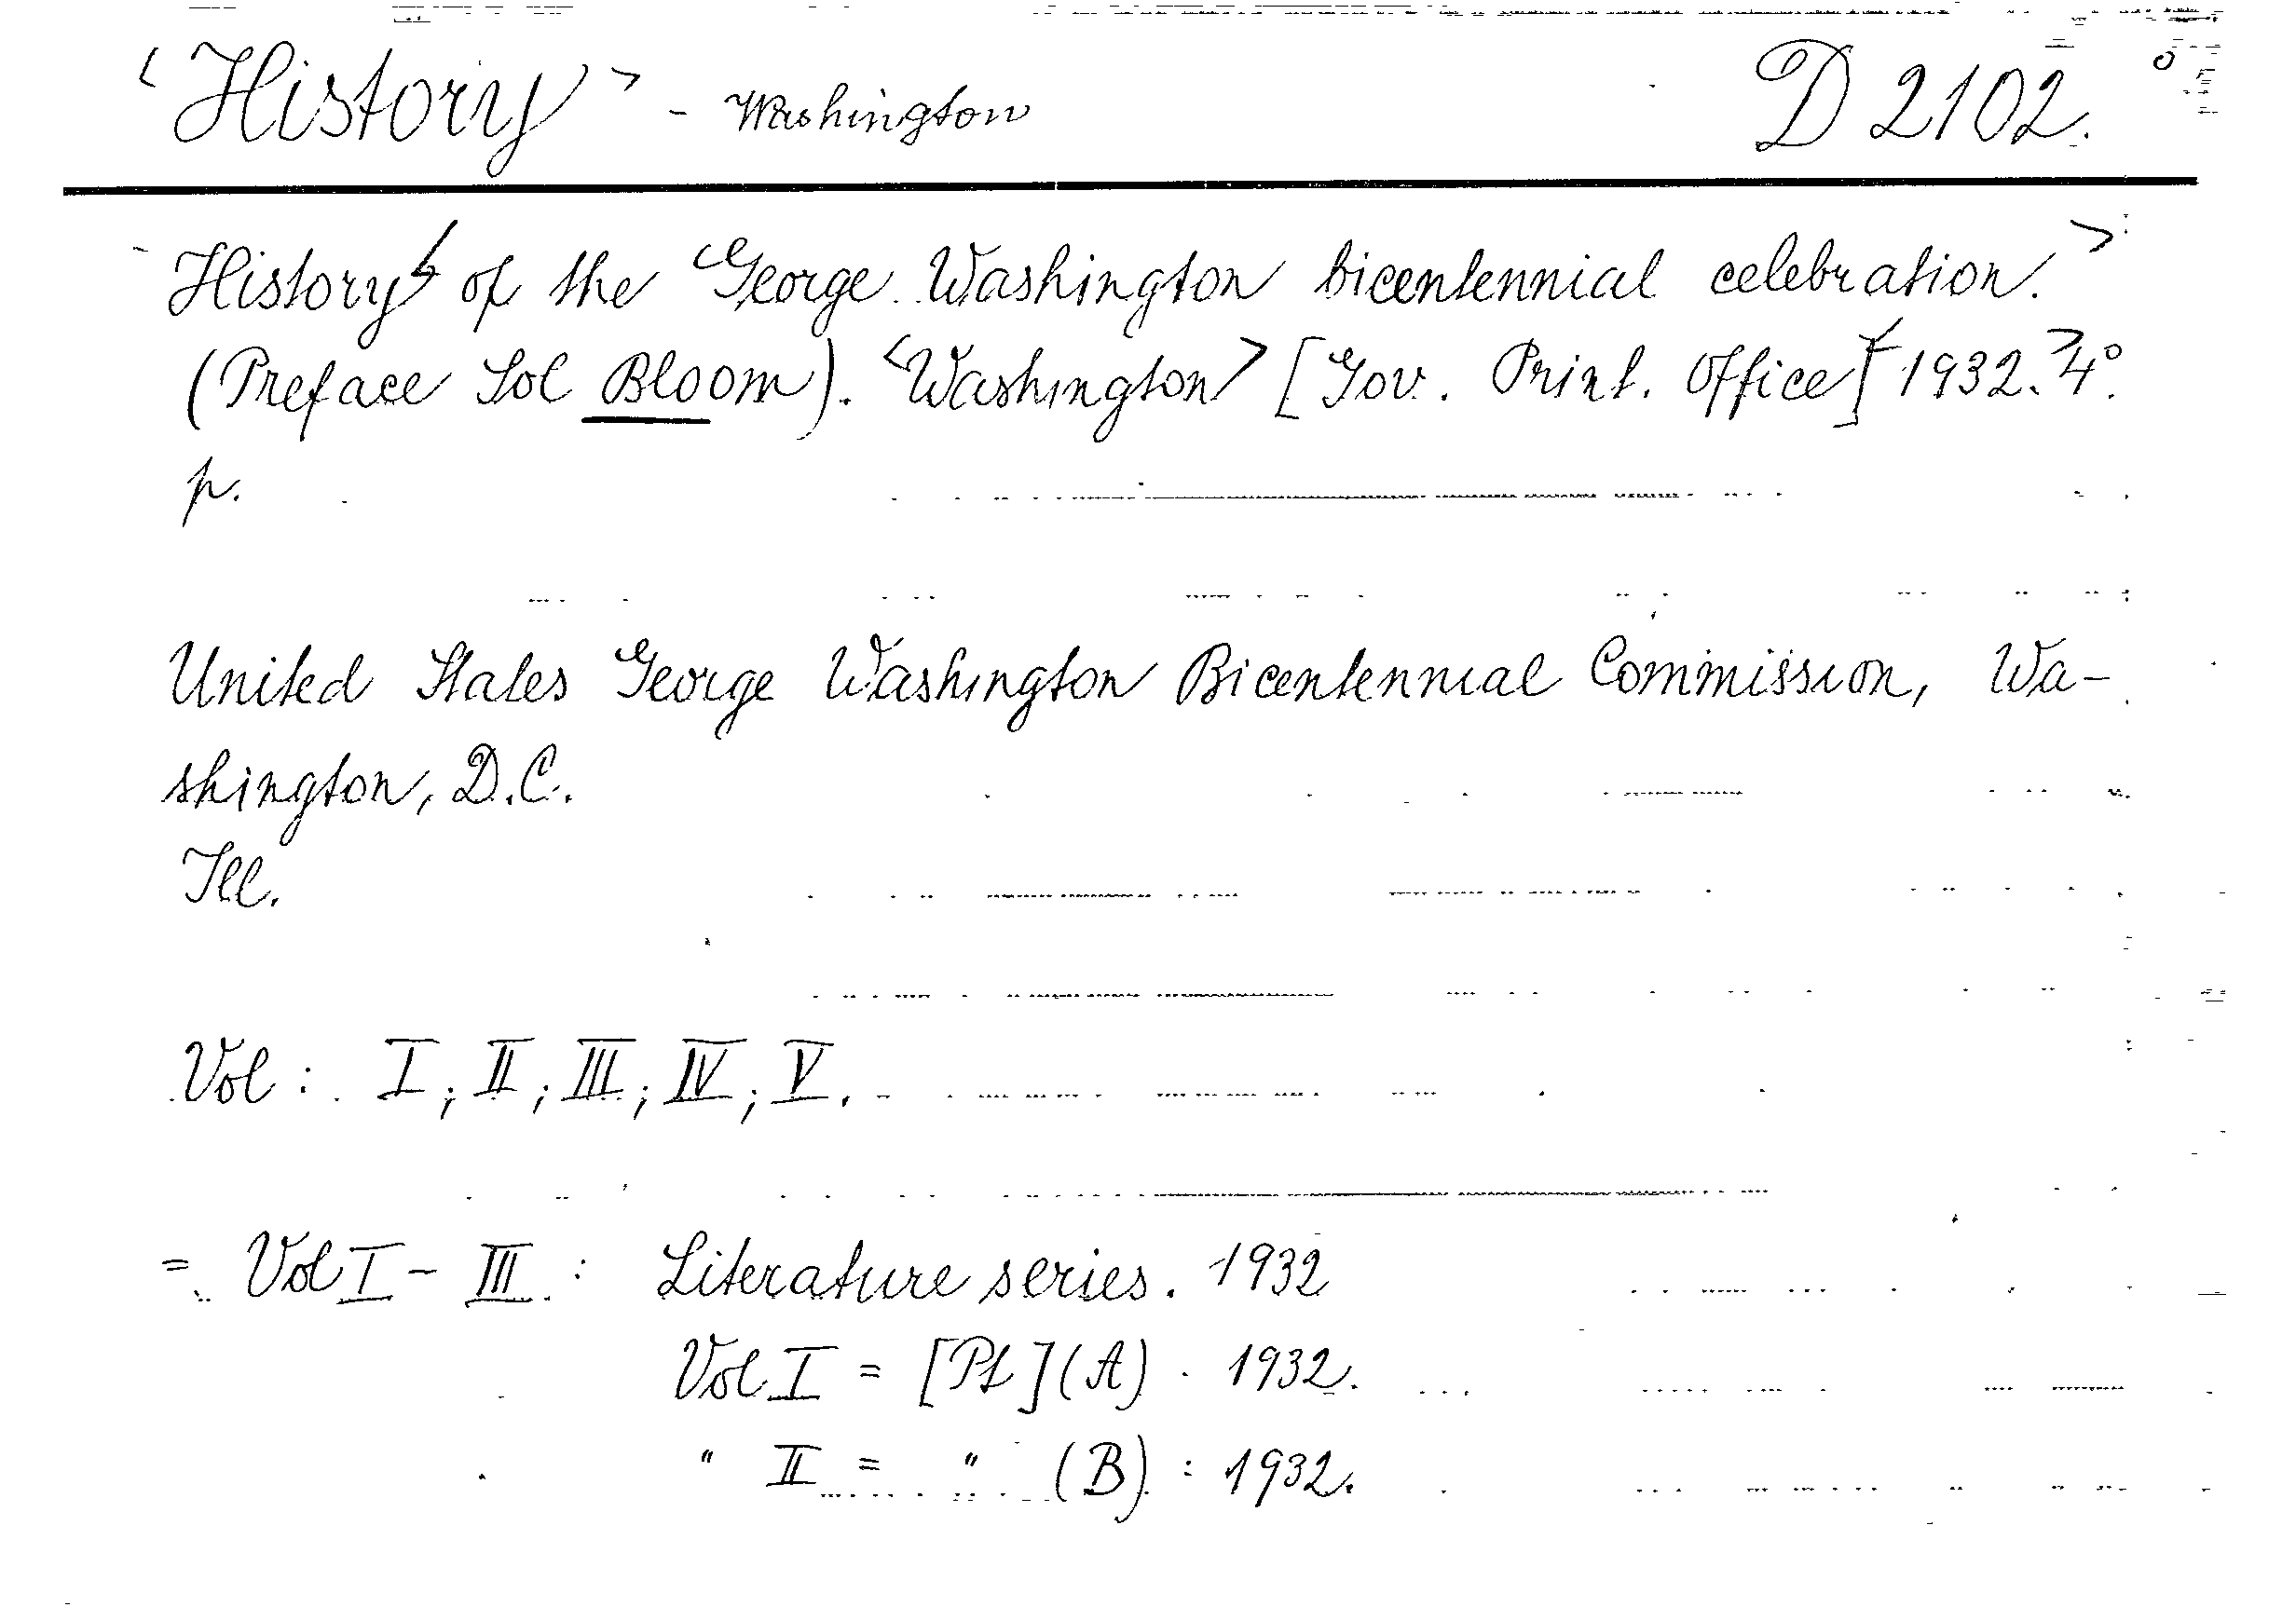 ‹History› - Washington D 2102.°
History of the George Washington bicentennial celebration.>
(Preface Sol Bloom). <Washington> [Gov. Print. Office] 1932.> 4°.
p.
United States George Washington Bicentennial Commission, Wa-
shington, D.C.
Ill.
Vol: I; II; III; IV; V.
= Vol I - III: Literature series. 1932
Vol I = [Pt](A). 1932.
" II = " (B): 1932.